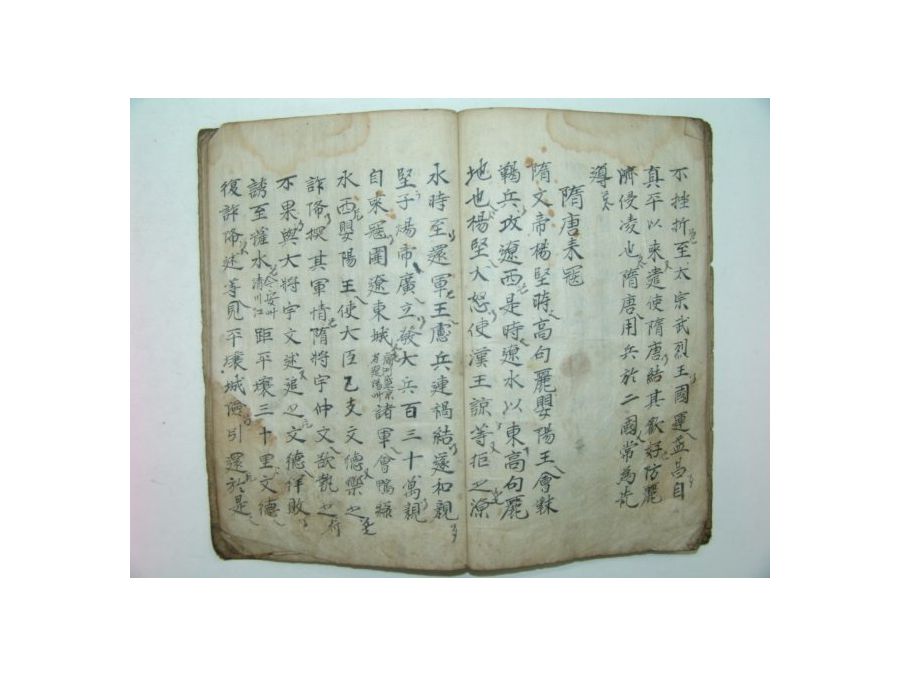 不挫折至太宗武烈王國運益昌自
真平以來遣使隋唐結其歡好防麗
濟侵凌也隋唐用兵於二國常為先
導矣
隋唐來寇
隋文帝楊堅時高句麗嬰陽王會靺
鞨兵攻遼西是時遼水以東高句麗
地也楊堅大怒使漢王諒等拒之潦
水時至還軍王慮兵連禍結遂和親
堅子煬帝廣立發大兵百三十萬親
自來寇圍遼東城 諸軍會鴨綠
水西嬰陽王使大臣乙支文德樂之
詐降探其軍情隋將宇仲文欲執之
不果與大將宇文述追之文德佯敗
誘至薩水 今安州清川江 距平壤三十里文德
復詐降述等見平壤城險引還於是